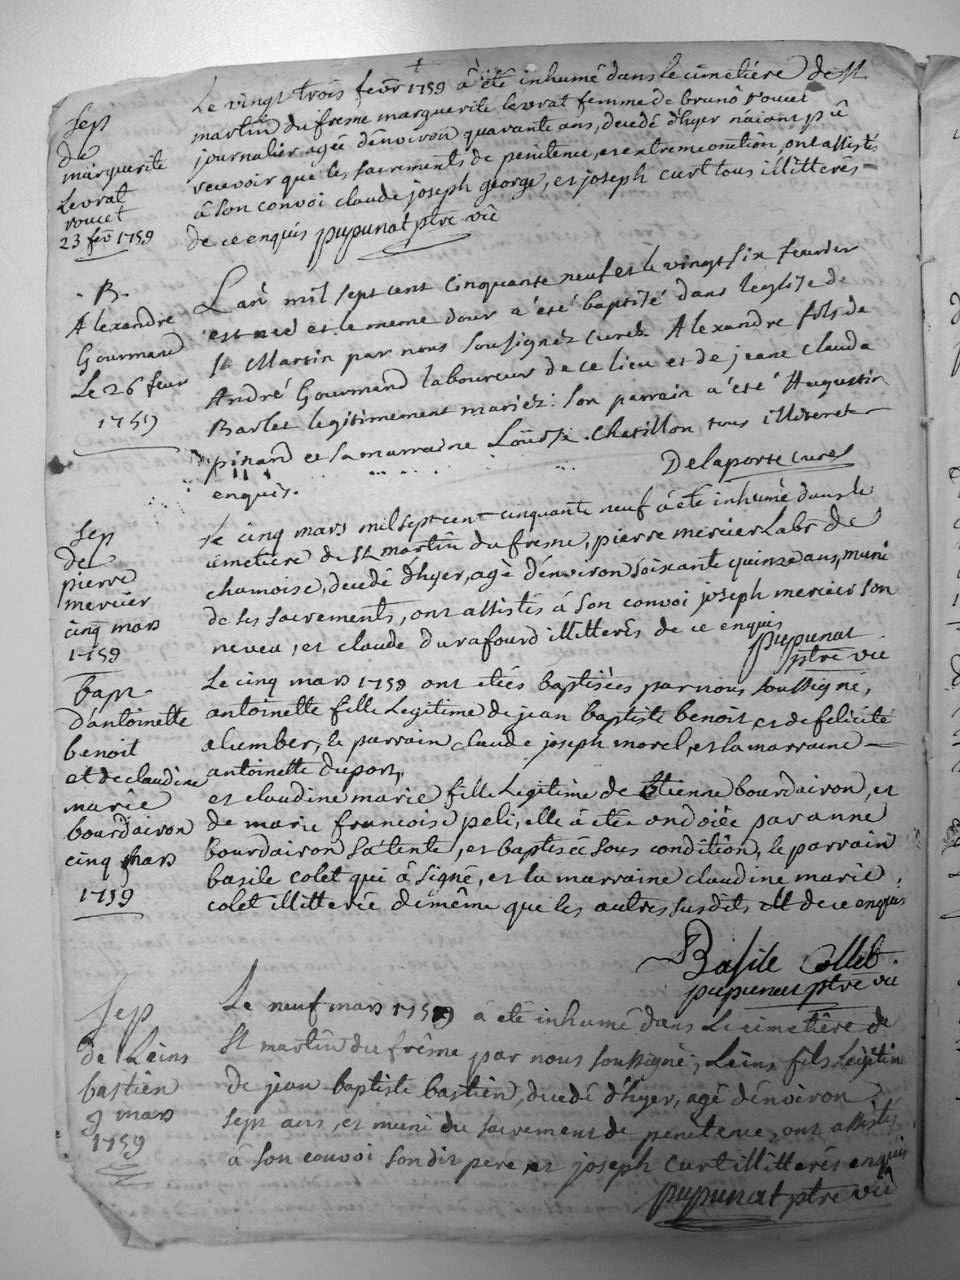 Sep
de
marguerite
Levrat
roucet
23 fev 1759
Le vingt trois fevr 1759 à été inhumé dans le cimetiére de St
martin du fresne marguerite levrat femme de brunô roucet
journalier agée d'environ quarante ans, decedé d'hyer naiant pû
recevoir que les sacrements de penitence, et extremeonction, ont assistés
â son convoi claude joseph george, et joseph curt tous illitterés
de ce enquis pupunat ptre vic
B.
Alexandre
Gourmand
Le 26 fevr
1759
L'an mil sept cent cinquante neuf et le vingt six fevrier
est née et le meme jour a été baptisé dans leglise de
St Martin par nous soussignéz curéz Alexandre fils de
André Gourmand laboureur de ce lieu et de jeane clauda
Barlet legitimement mariéz: son parrain a été Augustin
pinard et sa marraine Loüise Chatillon tous illiteret
enquis.
Delaporte curé
Sep
de
pierre
mercier
cinq mars
1759
Le cinq mars mil sept cent cinquante neuf à été inhumé dans le
cimetiere de St martin du fresne, pierre mercier Labr de
chamoise, decedé d'hyer, agé d'environ soixante quinze ans, muni
de ses sacrements, ont assistés â son convoi joseph mercier son
neveu, et claude durafourd illitterés de ce enquis
pupunat
ptre vic
bapt.
d'antoinette
benoit
et de claudine
marie
bourdairon
cinq mars
1759
Le cinq mars 1759 ont étées baptisées par nous soussigné,
antoinette fille legitime de jean baptiste benoit et de felicité
alember, le parrain claude joseph morel, et la marraine
antoinette duport,
et claudine marie fille legitime de Etienne bourdairon, et
de marie francoise peli, elle à étée ondoiée par anne
bourdairon sa tente, et baptisée sous condition, le parrain
basile colet qui â signé, et la marraine claudine marie
colet illitterée de même que les autres susdits de ce enquis
Basile Collet
pupunat ptre vic
Sep
de Leins
bastien
9 mars
1759
Le neuf mars 1759 à été inhumé dans le cimetiére de
St martin du frêne par nous soussigné, Leins fils legitim
de jean baptiste bastien, decedé d'hyer, agé d'environ
sept ans, et muni du sacrement de penitence, ont assistés
à son convoi son dit pere et joseph curt illitterés enquis
pupunat ptre vic